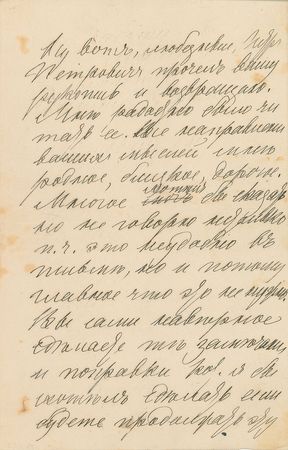 Ну вотъ, любезный, Петръ
Петровичъ прочелъ вашу
рукопись и возвращаю.
Мнѣ радостно было чи
тать ее. Все направленіе
вашихъ мыслей мнѣ
родное, близкое, дорогое.
Многое хотѣлъ бы сказать
но не говорю
п. ч. это неудобно въ
письмѣ, но и потому
главное что это не нужно.
Вы сами навѣрное
сдѣлаете тѣ
и поправки кот. я бы
хотѣлъ сдѣлать если
будете продолжать эту